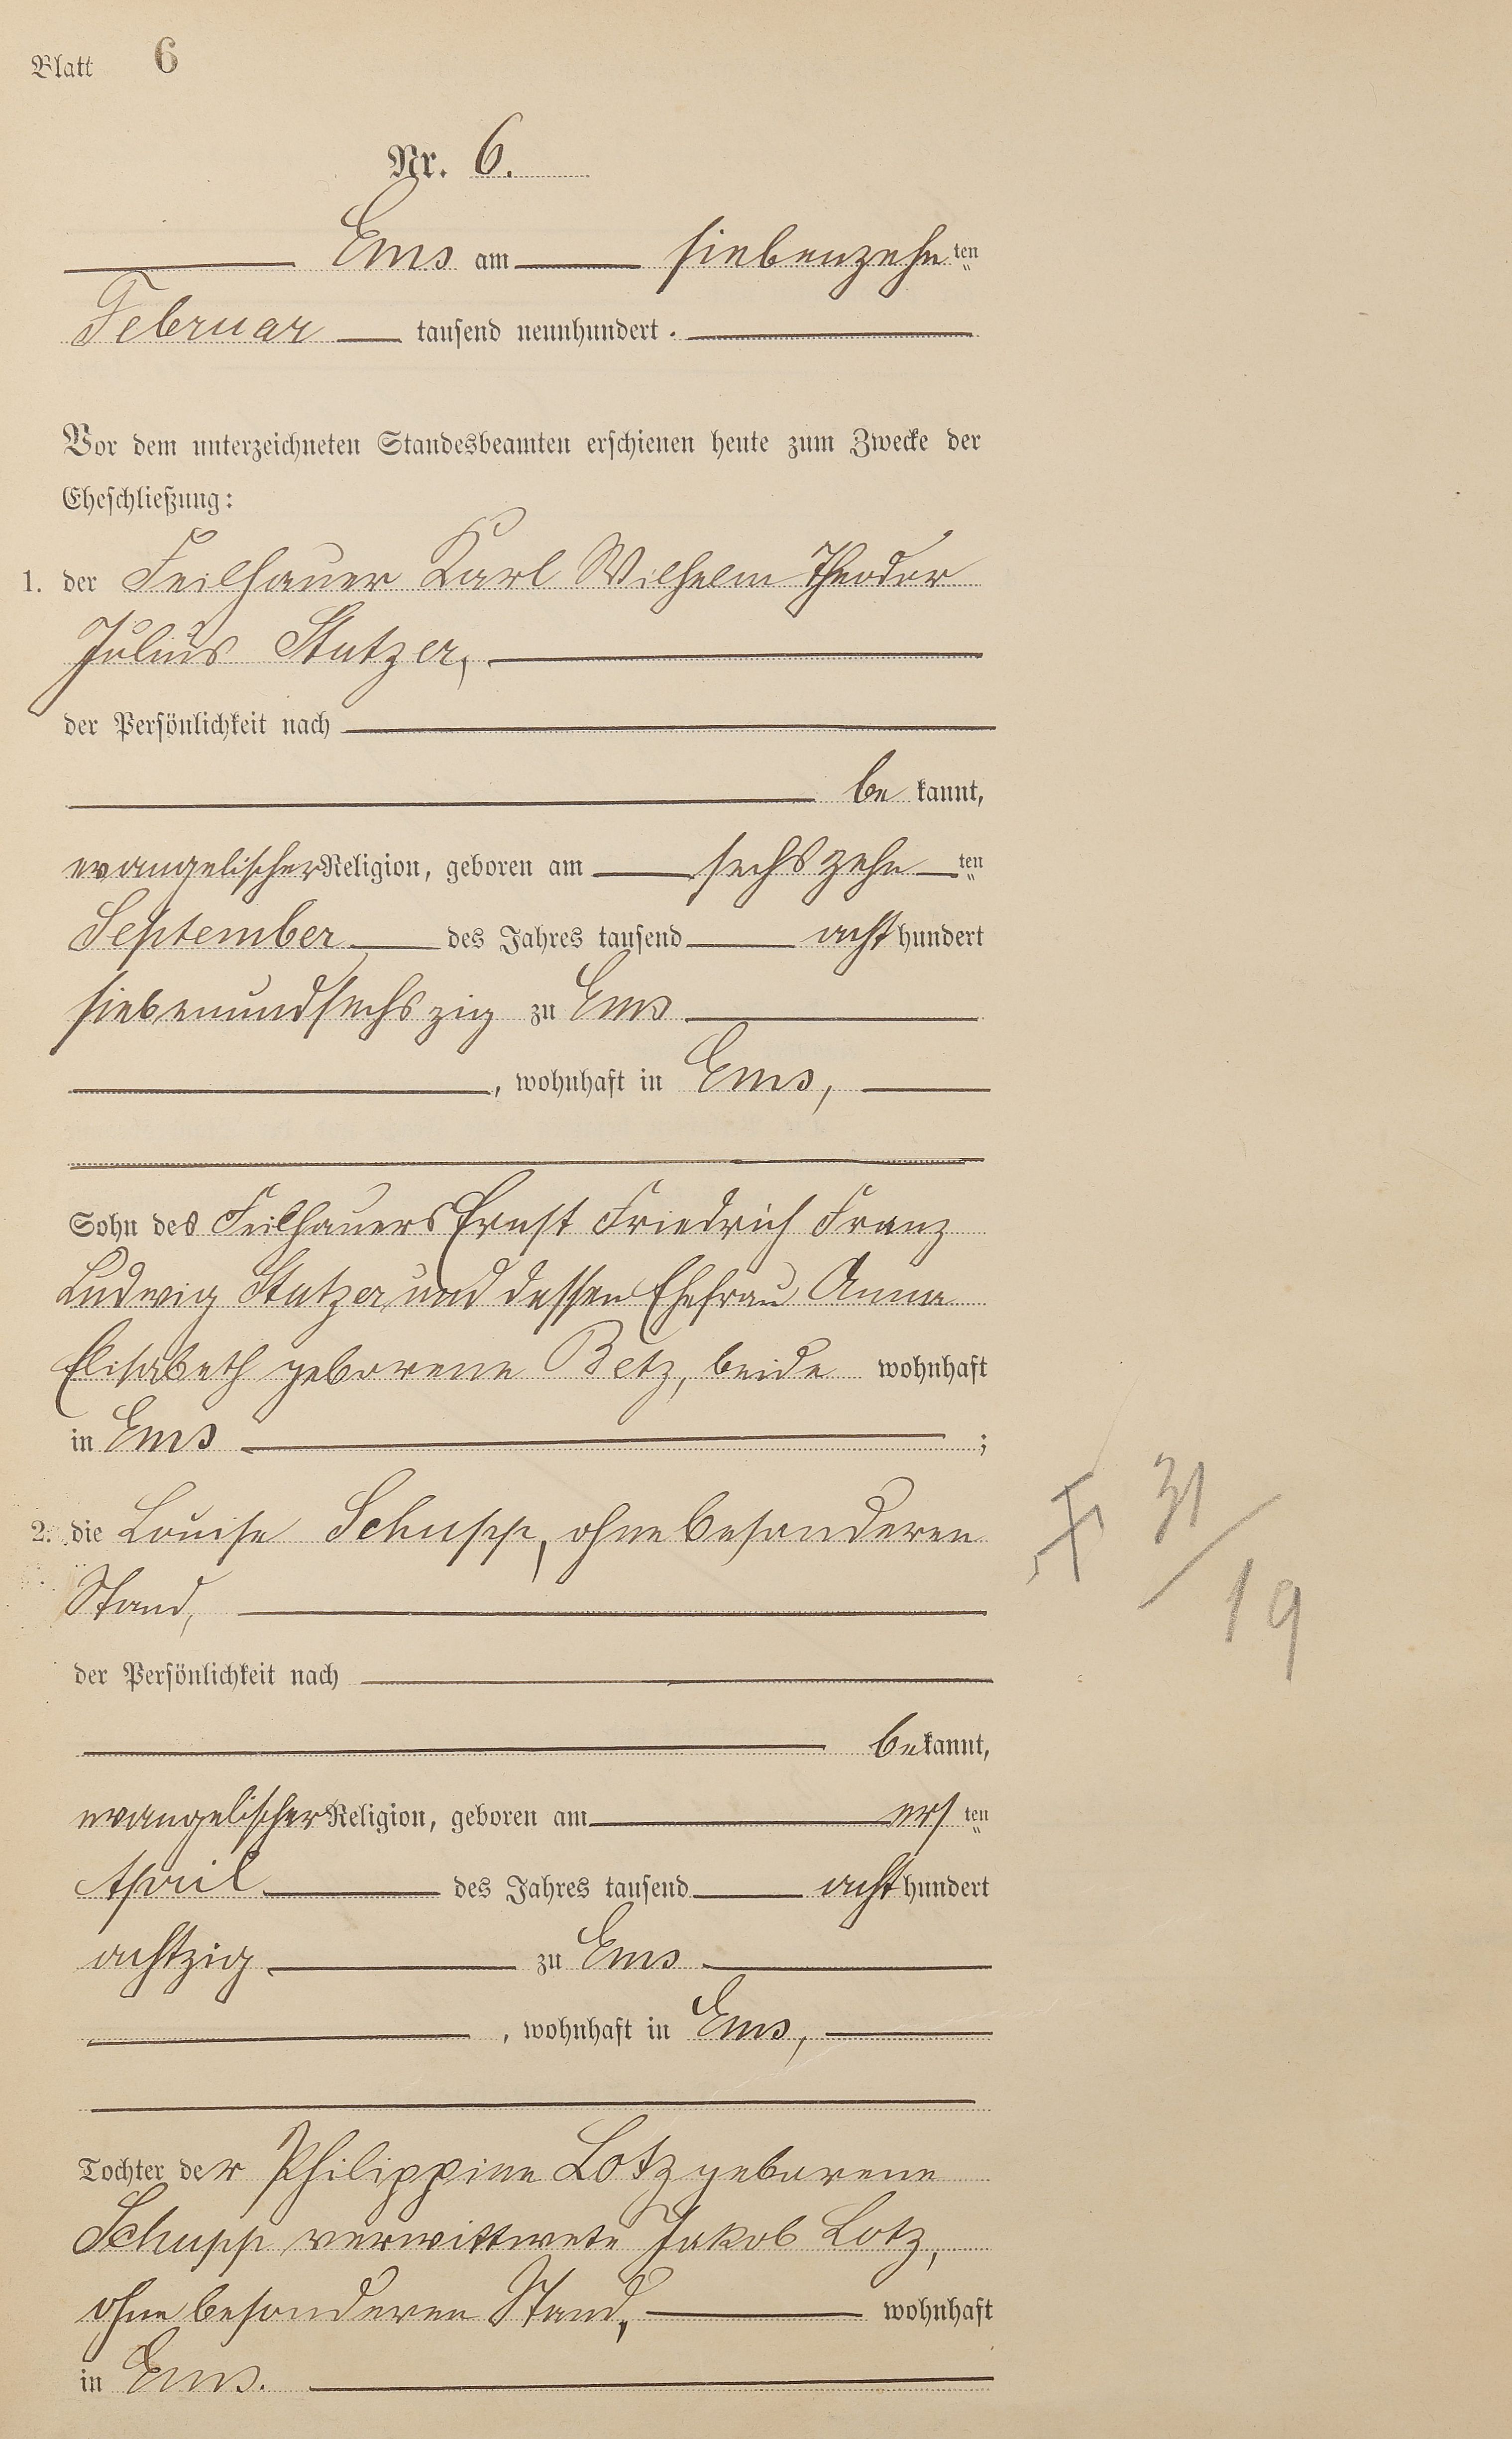 Blatt 6
Nr. 6.
Ems am siebenzehnten
Februar tausend neunhundert.
Vor dem unterzeichneten Standesbeamten erschienen heute zum Zwecke der
Eheschließung:
1. der Feilhauer Karl Wilhelm Theodor
Julius Stutzer,
der Persönlichkeit nach
bekannt,
evangelischer Religion, geboren am sechszehnten
September des Jahres tausend achthundert
siebenundsechszig zu Ems
, wohnhaft in Ems,
Sohn des Feilhauers Ernst Friedrich Franz
Ludwig Stutzer und dessen Ehefrau Anna
Elisabeth geborene Betz, beide wohnhaft
in Ems ;
2. die Louise Schupp, ohne besonderen
Stand,
der Persönlichkeit nach
bekannt,
evangelischer Religion, geboren am ersten
April des Jahres tausend achthundert
achtzig zu Ems
, wohnhaft in Ems,
Tochter der Philippine Lotz geborene
Schupp verwittwete Jakob Lotz,
ohne besonderen Stand, wohnhaft
in Ems.
31/19